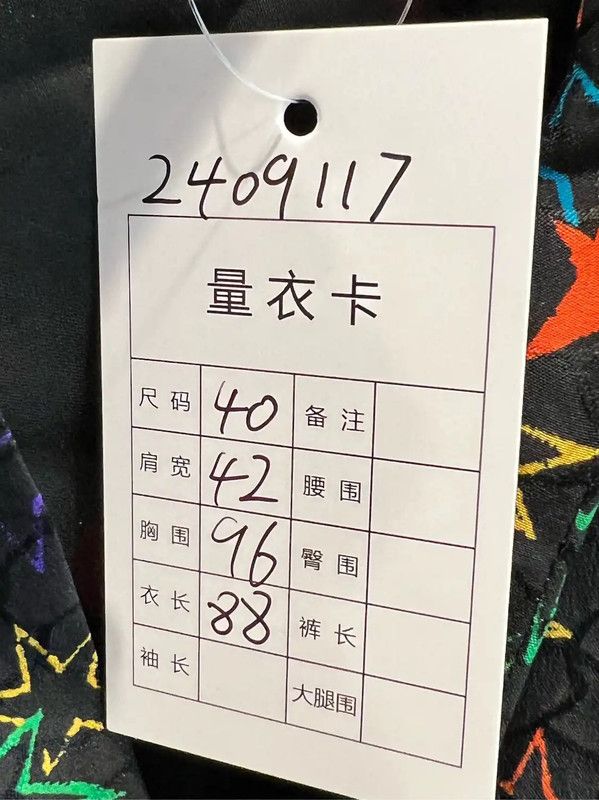 2409117
量衣卡
尺码 40 备注
肩宽 42 腰围
胸围 96 臀围
衣长 88 裤长
袖长 大腿围